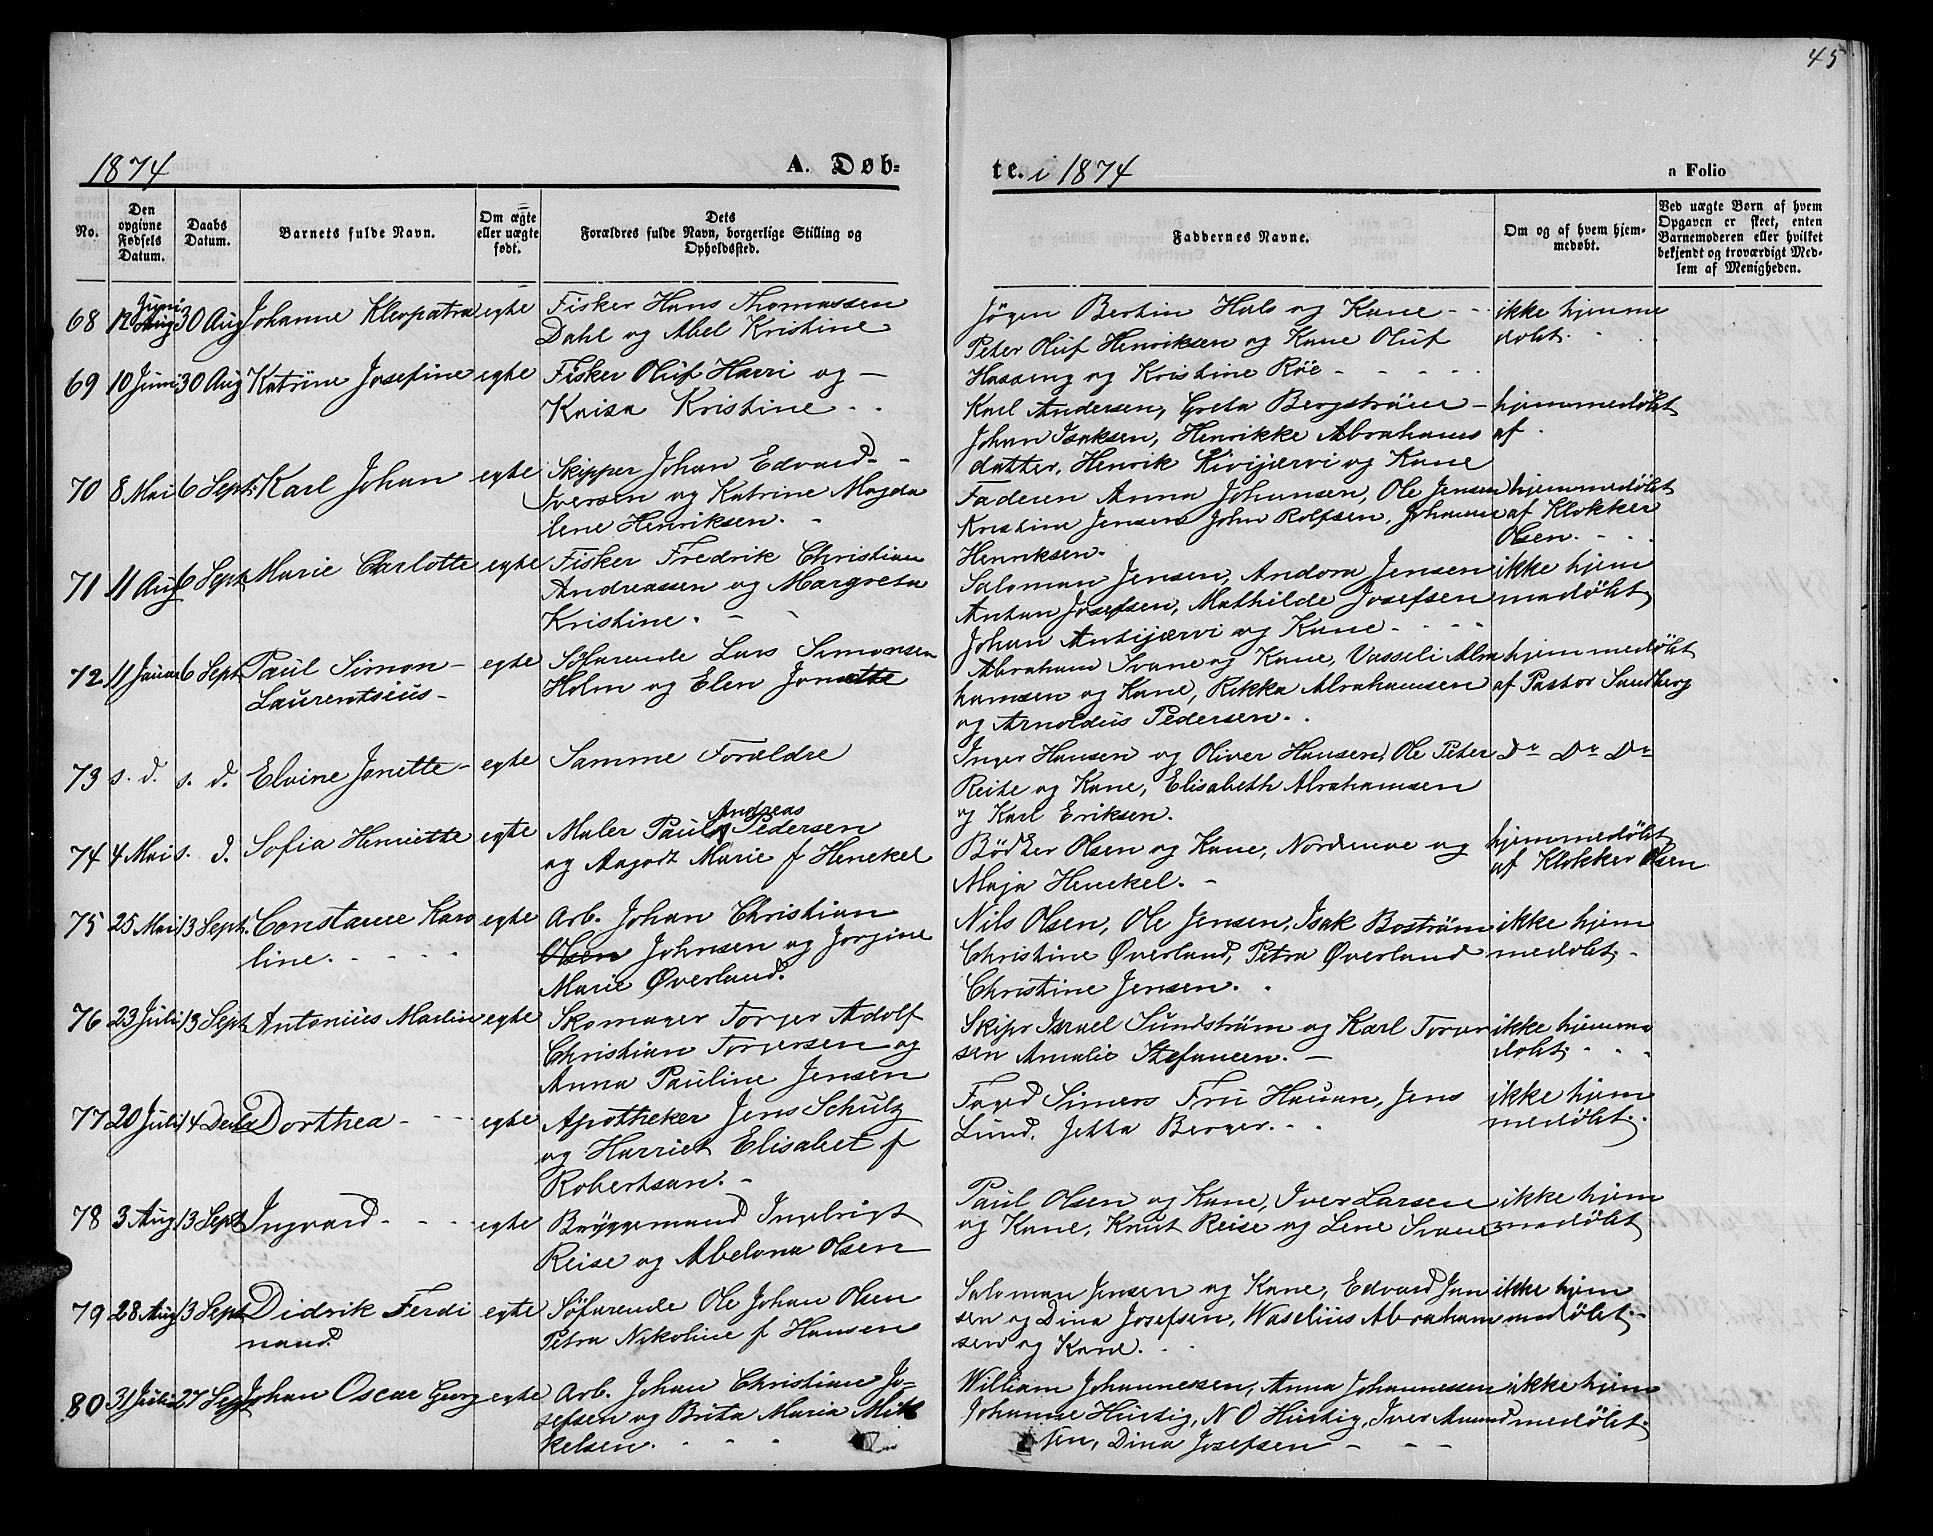 45
1874
A. Døb=
te. i 1874
a Folio
No.
Den opgivne Fødsels Datum.
Daabs Datum.
Barnets fulde Navn.
Om ægte eller uægte født.
Dets Forældres fulde Navn, borgerlige Stilling og Opholdssted.
Faddernes Navne.
Om og af hvem hjemmedøbt.
Ved uægte Børn af hvem Opgaven er skeet, enten Barnemoderen eller hvilket bekjendt og troværdigt Medlem af Menigheden.
68 12 Juni 30 Aug Johanne Kleopatra egte Fisker Hans Thomassen
Dahl og Abel Kristine
Jögen Bertin Hals og Kane - - ikke hjemme
Peter Oluf Henriksen og Kane Oluf dobt.
Hasseng og Kristine Röe - - - -
69 10 Juni 30 Aug Katrine Josefine egte Fisker Oluf Harri og -
Kaisa Kristine - -
Karl Andersen, Greta Bergström - hjemmedöbt
Johan Isaksen, Henrikke Abrahams af
datter, Henrik Kivijærvi og Kane
70 8 Mai 6 Sept. Karl Johan egte Skipper Johan Edvard -
Iversen og Katrine Magda
lene Henriksen. -
Faderen Anna Johansen, Ole Jensen hjemmedöbt
Kristine Jensen John Rolfsen, Johanne af Klokker
Henriksen. Olsen. - - -
71 11 Aug 6 Sept Marie Charlotte egte Fisker Fredrik Christian
Andreassen og Margreta
Kristine. - -
Saloman Jensen, Andora Jensen ikke hjem
Antan Josefsen, Mathilde Josefsen medöbt
Johan Antijærvi og Kane - - -
72 11 Januar 6 Sept Paul Simon - egte Söfarende Lars Simonsen
Laurentsius - Holm og Elen Jonette
Abraham Svane og Kane, Vasseli Abra hjemmedöbt
hamsen og Kane, Rikka Abrahamsen af Pastor Sandberg
og Arnoldus Pedersen. -
73 s. d. s. d. Elvine Jonette - egte Samme Forældre
Inger Hansen og Oliver Hansen, Ole Peter Do Do Do
Reite og Kane, Elisabeth Abrahamsen
og Karl Eriksen.
74 4 Mai s. d. Sofia Henriette egte Maler Paul Andreas Pedersen
og Aagodt Marie f Henckel
Bödker Olsen og Kane, Nordmoe og hjemmedöbt
Maja Henckel. - af Klokker Olsen
75 25 Mai 13 Sept. Constance Karo egte Arb. Johan Christian
line. - - - - Olsen Johnsen og Jorgine
Marie Øverland.
Nils Olsen, Ole Jensen, Isak Boström ikke hjem
Christine Øverland, Petra Øverland medobt. -
Christine Jensen. -
76 23 Juli 13 Sept Antonius Martin egte Skomager Torger Adolf
Christian Torgersen og
Anna Pauline Jensen
Skipr Israel Sundström og Karl Torger ikke hjemme
sen Amalie Stefansen. - dobt. - -
77 20 Juli 14 Deila Dorthea - - - egte Apotheker Jens Schulz
og Harriet Elisabet f
Robertsan. -
Foged Simers Fru Hauan, Jens ikke hjem
Lund, Jetta Berger. - - medöbt.
78 3 Aug 13 Sept Ingvard - - - egte Bryggemand Ingebrigt
Reise og Abelona Olsen
Paul Olsen og Kane, Iver Larsen ikke hjem
og Kane, Knut Reise og Lene Svane medöbt
79 28 Aug 13 Sept Didrik Ferdi egte Söfarende Ole Johan Olsen
nand. Petra Nikoline f Hansen
Saloman Jensen og Kane, Edvard Jan ikke hjem
sen og Dina Josefsen, Waselius Abraham medöbt. -
sen og Kane. - -
80 31 Juli 27 Sept Johan Oscar Georg egte Arb. Johan Christian Jo-
sefsen og Brita Maria Mik
kelsen. - - -
William Johannessen, Anna Johannessen ikke hjem
Johanne Hurtig, N O Hurtig, Iver Amund medöbt.
sen, Dina Josefsen - - -